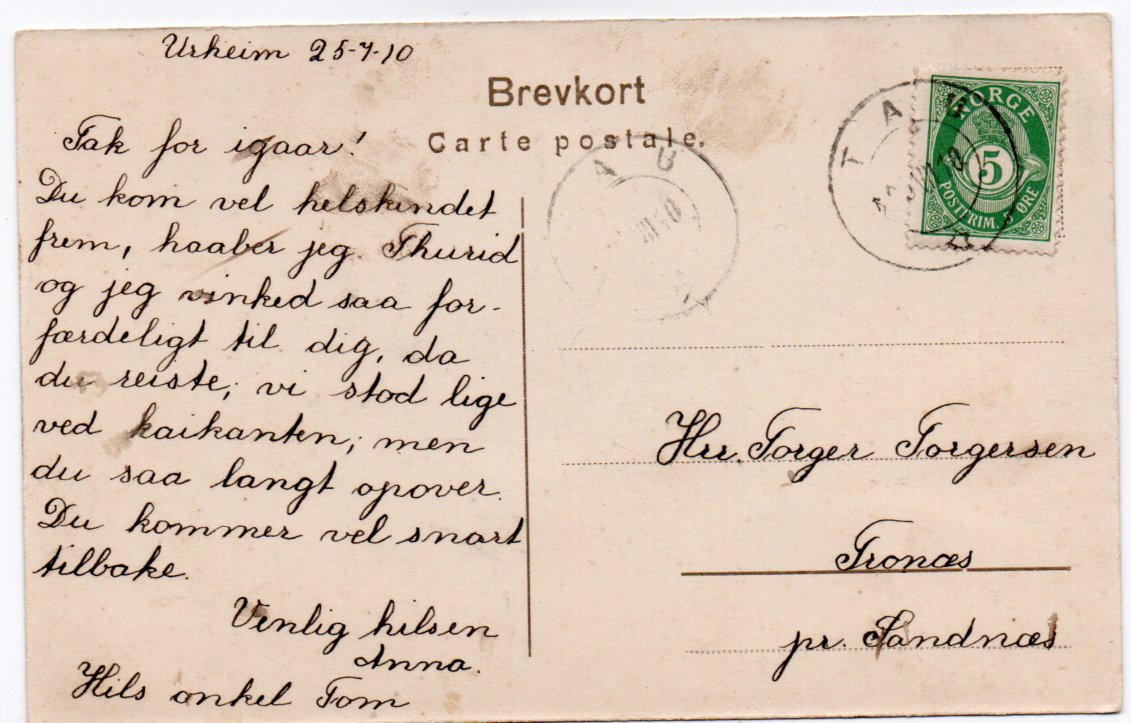 Urheim 25-7-10
Brevkort
Carte postale.
Tak for igaar!
Du kom vel helskindet
frem, haaber jeg. Thurid
og jeg vinked saa for-
færdeligt til dig, da
du reiste; vi stod lige
ved kaikanten; men
du saa langt opover.
Du kommer vel snart
tilbake.
Venlig hilsen
Anna.
Hils onkel Tom
NORGE
5
POSTFRIM. 5 ØRE
TAU
Hrr. Torger Torgersen
Tronæs
pr. Sandnæs